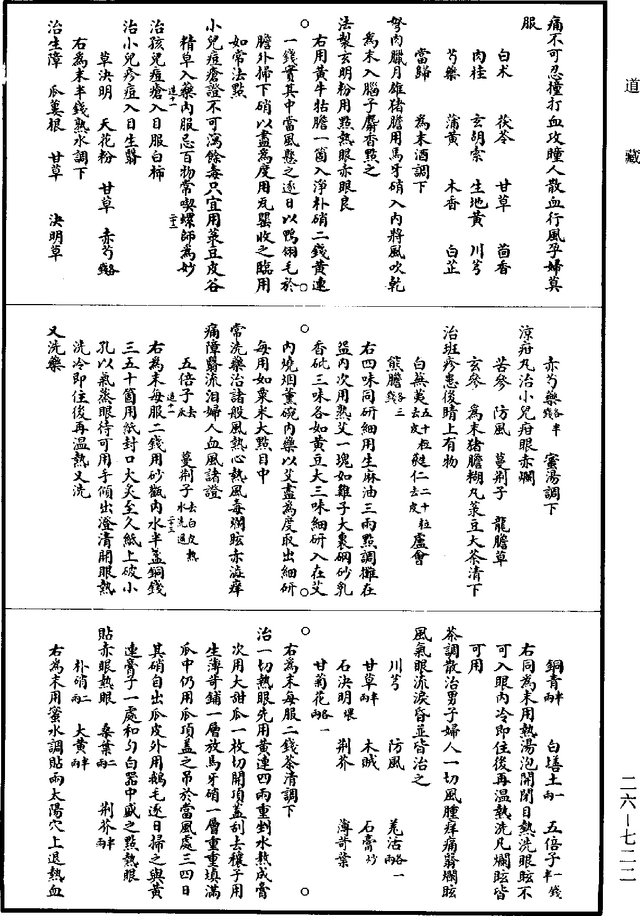 道藏
痛不可忍撞打血攻瞳人散血行風孕婦莫
服
白朮　茯苓　甘草　茴香
肉桂　玄胡索　生地黃　川芎
芍藥　蒲黃　木香　白芷
當歸　為末酒調下
胬肉臘月雄豬膽用馬牙硝入內將風吹乾
為末入腦子麝香點之
法製玄明粉用點熱眼赤眼良
右用黃牛牯膽一箇入淨朴硝二錢黃連
一錢實其中當風懸之逐日以鴨翎毛於
膽外掃下硝以盡為度用瓦罌收之臨用
如常法點
小兒痘瘡證不可瀉餘毒只宜用菉豆皮谷
精草入藥內服忌百物常喫螺師為妙
治孩兒痘瘡入目服白柿
治小兒疹痘入目生翳
草決明　天花粉　甘草　赤芍錢各
右為末半錢熟水調下
治生障　瓜蔞根　甘草　決明草
赤芍藥各半錢　蜜湯調下
涼疳丸治小兒疳眼赤爛
苦參　防風　蔓荊子　龍膽草
玄參　為末豬膽糊丸菉豆大茶清下
治斑疹患後睛上有物
白蕪荑五十粒去皮　蕤仁二十粒去皮　盧會
熊膽各三錢
右四味同研細用生麻油三兩點調攤在
盌內次用熟艾一塊如雞子大裹硇砂乳
香砒三味各如黃豆大三味細研入在艾
內燒烟薰碗內藥以艾盡為度取出細研
每用如粟米大點目中
常洗藥治諸般風熱心熱風毒爛眩赤澁痒
痛障翳流淚婦人血風諸證
五倍子去灰　蔓荊子去白皮熱水洗過
右為末每服二錢用砂甌內水半盞銅錢
三五十箇用紙封口大炙至久紙上破小
孔以氣蒸眼待可用手傾出澄清開眼熱
洗冷即住後再溫熱又洗
又洗藥
銅青半兩　白墡土一兩　五倍子一錢半
右同為末用熱湯泡開閉目熱洗眼眩不
可入眼內冷即住後再溫熱洗凡爛眩皆
可用
茶調散治男子婦人一切風腫痒痛翳爛眩
風氣眼流淚昏並皆治之
川芎　防風　羌活各一兩
甘草半兩　木賊　石膏炒
石決明煨　荊芥　薄荷葉
甘菊花各一兩
右為末每服二錢茶清調下
治一切熱眼先用黃連四兩重剉水熬成膏
次用大甜瓜一枚切開頂蓋刮去穰子用
生薄荷鋪一層放馬牙硝一層重重填滿
瓜中仍用瓜頂蓋之吊於當風處三四日
其硝自出瓜皮外用鵝毛逐日掃之與黃
連膏子一處和勻白器中盛之點熱眼
貼赤眼熱眼　桑葉二兩　荊芥半兩
朴硝二兩　大黃半兩
右為末用蜜水調貼兩太陽穴上退熱血
二六—七二二